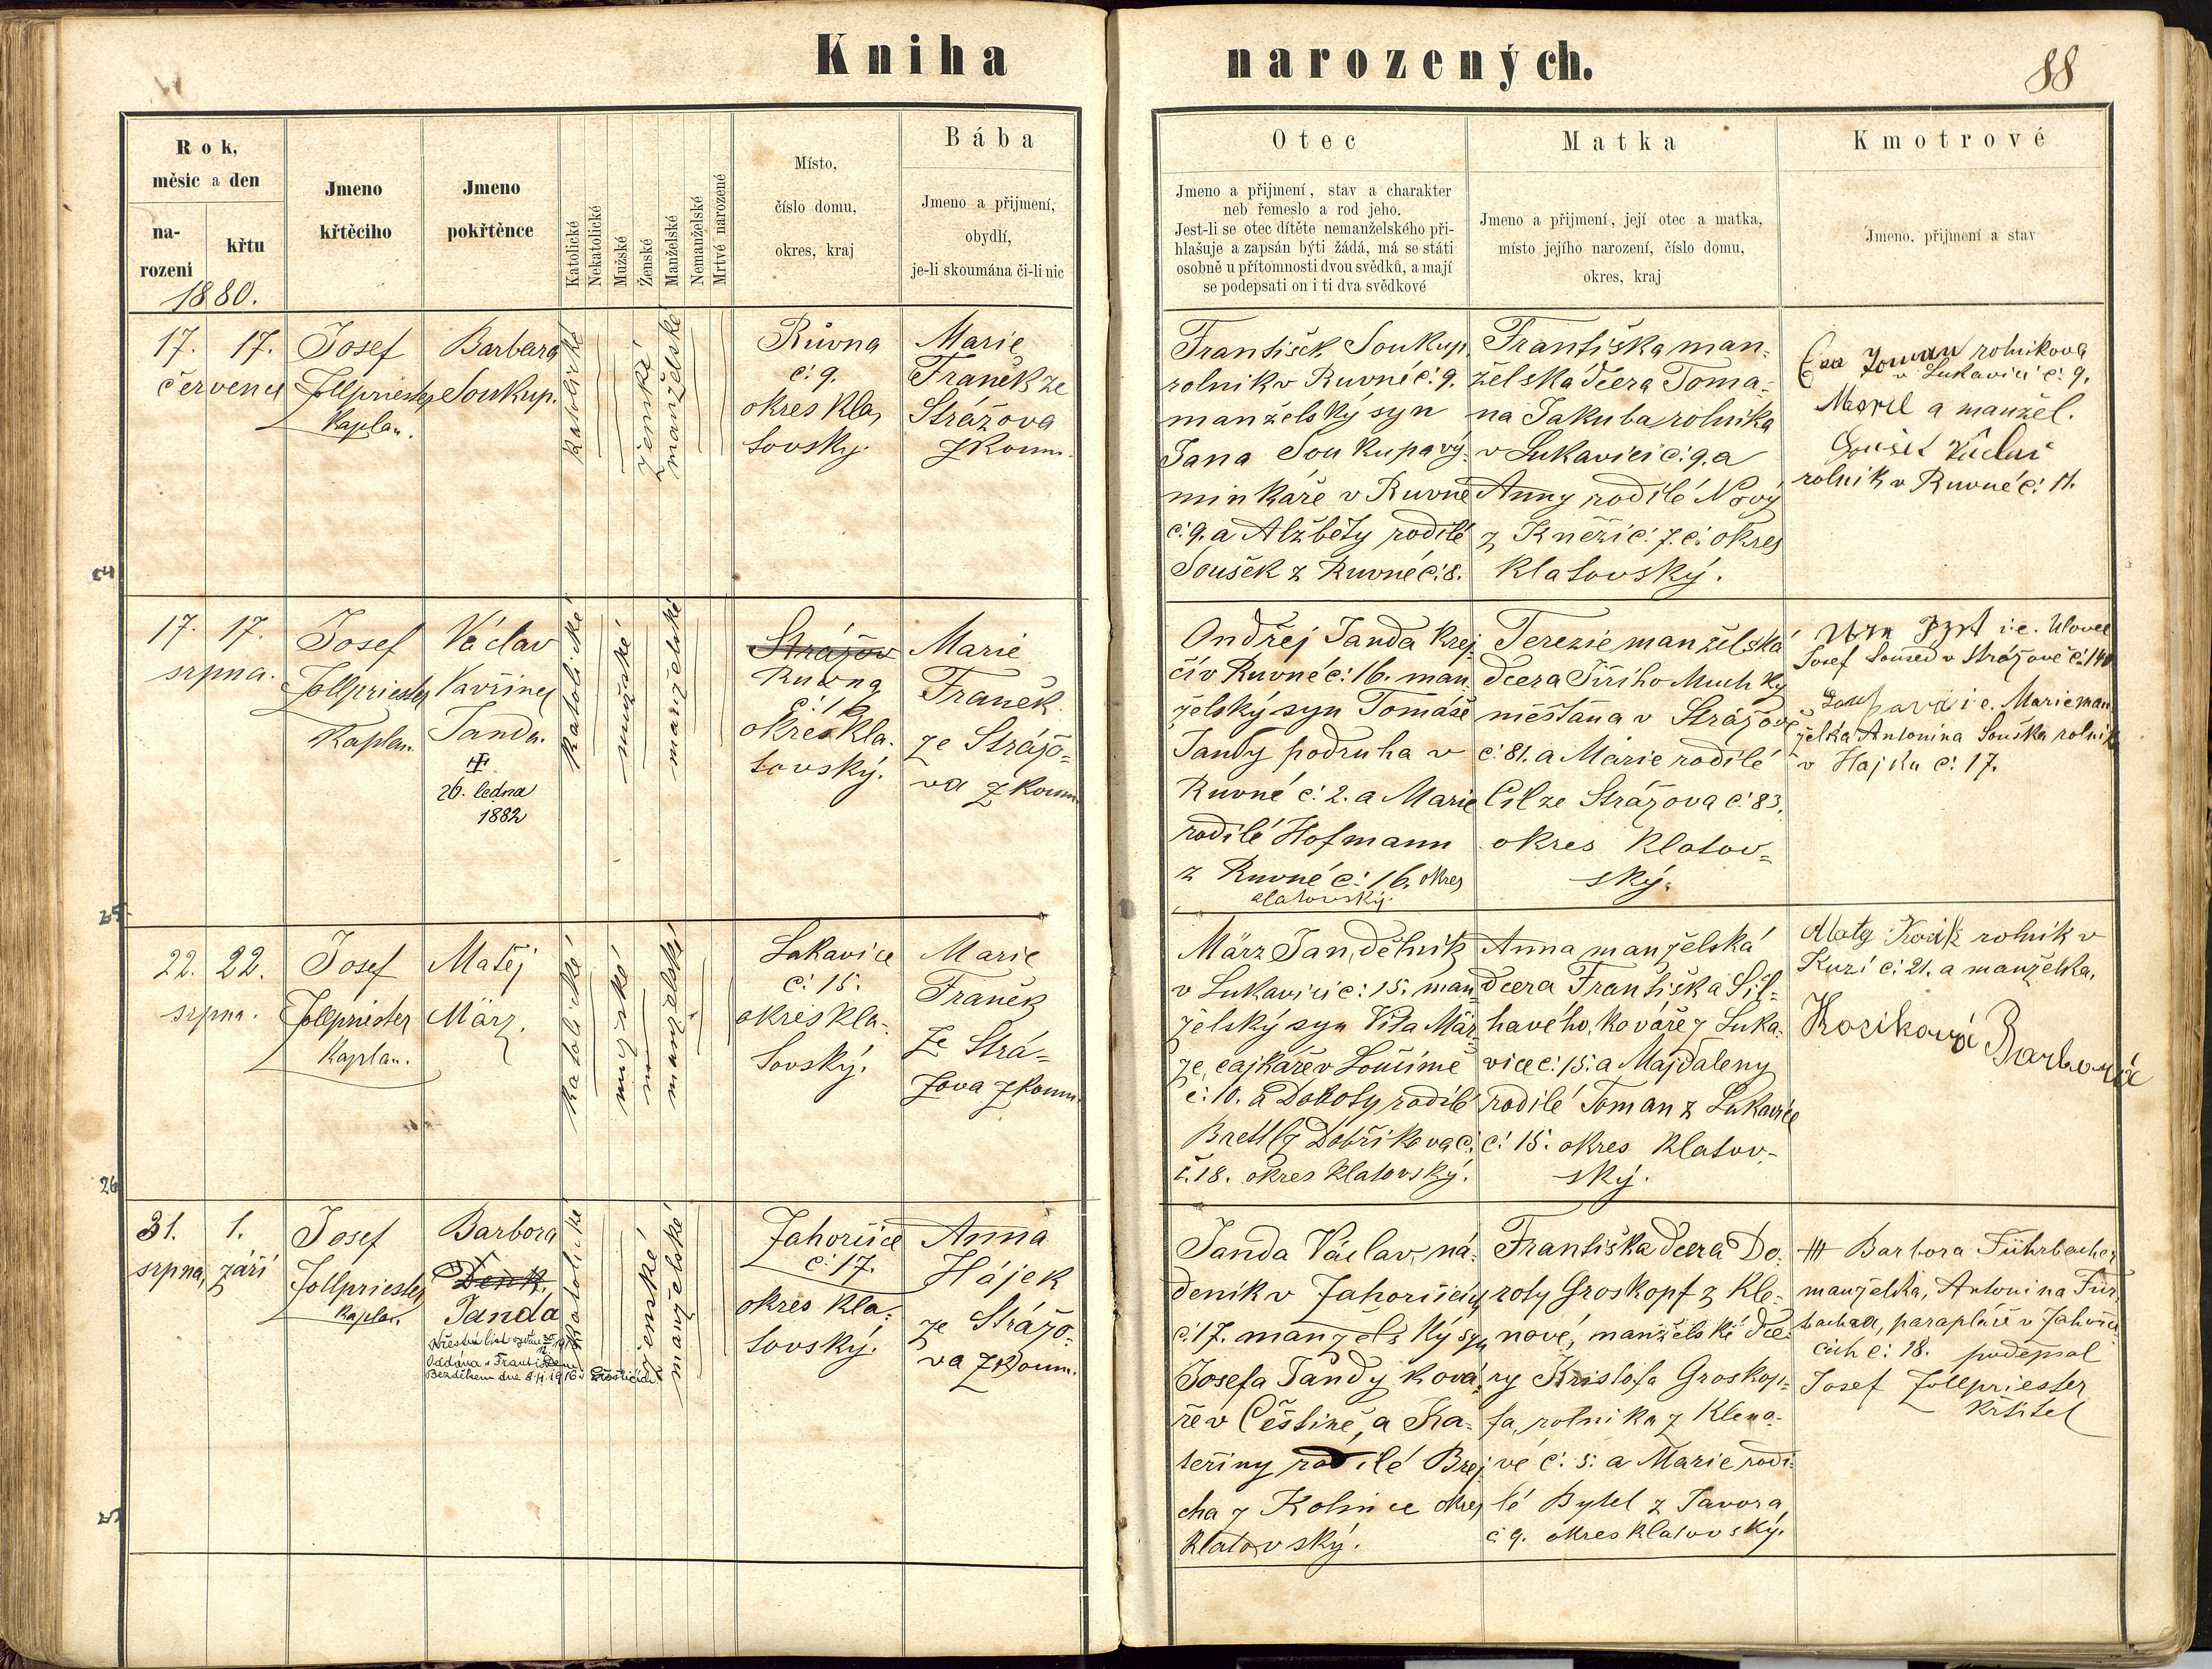 Kniha narozených.
88
Rok,
měsic a den
na-
rozeni
křtu
1880.
Jmeno
křtěciho
Jmeno
pokřtěnce
Katolické
Nekatolické
Mužské
Ženské
Manželské
Nemanželské
Mrtvé narozené
Místo,
číslo domu,
okres, kraj
Bába
Jmeno a přijmení,
obydlí,
je-li skoumána či-li nic
Otec
Jmeno a přijmení, stav a charakter
neb řemeslo a rod jeho.
Jest-li se otec dítěte nemanželského při-
hlašuje a zapsán býti žádá, má se státi
osobně u přítomnosti dvou svědků, a mají
se podepsati on i ti dva svědkové
Matka
Jmeno a přijmení, její otec a matka,
místo jejího narození, číslo domu,
okres, kraj
Kmotrové
Jmeno, přijmení a stav
17. 17.
července
Josef
Zollpriester
Kaplan.
Barbora
Soukup.
katolické
ženské
manželské
Růvna
č: 9.
okres kla,
tovsky.
Marie
Franěk ze
Strážova
zkoum.
František Soukup,
rolnik v Ruvné č: 9.
manželský syn
Jana Soukupa vý-
minkáře v Ruvné
č: 9. a Alžběty rodilé
Soušek z Ruvné č: 8.
Františka man-
želská dcera Toma-
na Jakuba rolnika
v Lukavici č: 9. a
Anny rodilé Nový
z Kněžic č: 7. okres
klatovský.
Eva Toman rolnikova
v Lukavici č: 9.
a manžel.
rolnik v Ruvné č: 11.
24
17. 17.
srpna.
Josef
Zollpriester
Kaplan.
Václav
Vavřinec
Janda.
26. ledna
1882
katolické
mužské
manželské
Strážov
Ruvna
č: 16
okres kla-
tovský.
Marie
Franěk
ze Strážo-
va zkoum.
Ondřej Janda krej-
čí v Ruvné č: 16. man-
želský syn Tomáše
Jandy podruha v
Ruvné č: 2. a Marie
rodilé Hofmann
z Ruvné č: 16. okres
klatovský.
Terezie manželská
dcera Jiřiho Muchky
měšťana v Strážově
č: 81. a Marie rodilé
Cil ze Strážova č: 83.
okres klatov-
ský.
Josef Soused v Strážově č: 140
i.e. Marie man-
želka Antonina Souška rolnik
v Hajku č: 17.
25
22. 22.
srpna.
Josef
Zollpriester
Kaplan.
Matěj
März.
katolické
mužské
manželské
Lukavice
č: 15.
okres kla-
tovský.
Marie
Franěk
ze Strá-
žova zkoum.
März Jan, dělnik
v Lukavici č: 15. man-
želský syn Vita Mär-
ze, cajkáře v Loučimě
č: 10. a Doroty rodilé
Brettl z Dobřikova č.
č. 18. okres klatovský.
Anna manželská
dcera Františka Sil-
havého, kováře z Luka-
vice č: 15. a Majdaleny
rodilé Toman z Lukavice
č: 15. okres klatov-
ský.
Matěj Kozik rolnik v
Kuzí č: 21. a manželka.
Koziková Barbora
26
31. 1.
srpna, září
Josef
Zollpriester
kaplan.
Barbora
Denk.
Janda
Oddána s Františkem
Bezděkem dne 8. 11. 1916 v
katolické
ženské
manželské
Zahorčice
č: 17.
okres kla-
tovský.
Anna
Hájek
ze Strážo-
va zkoum.
Janda Václav, ná-
deník v Zahorčicích
č: 17. manželský syn
Josefa Jandy ková-
ře v Češtině, a Ka-
teřiny rodilé Brej-
cha z Kolince okres
klatovský.
Františka dcera Do-
roty Groskopf z Kle-
nové, manželské dce-
ry Kristofa Groskop-
fa, rolnika z Kleno-
vé č: 5. a Marie rodi-
lé Bytel z Javora
č 9. okres klatovský.
+++ Barbora Führbacher
manželka, Antonina Für-
bachra, parapláře v Zahorči-
cích č: 18. podepsal
Josef Zollpriester
křtitel